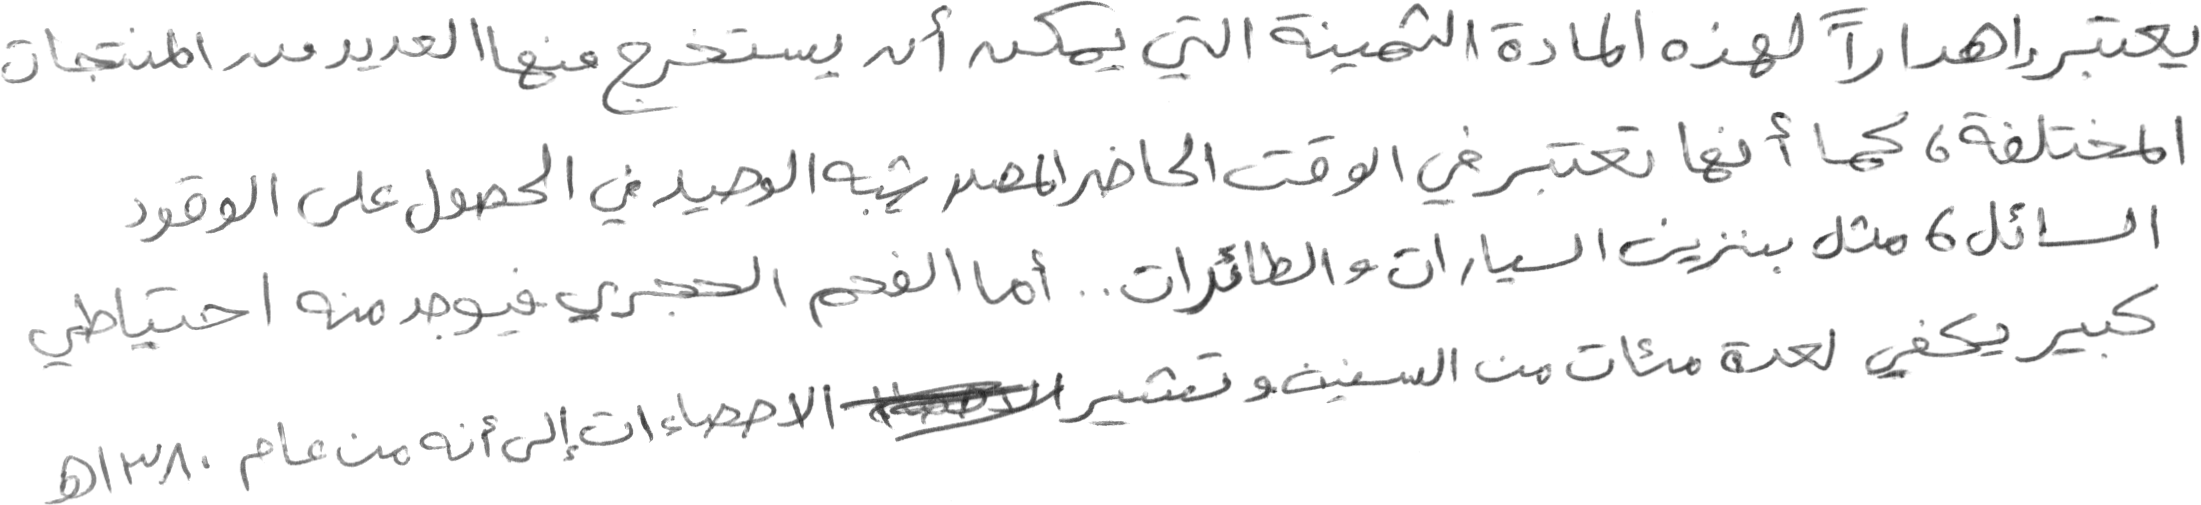 يعتبر إهداراً لهذه المادة الثمينة التي يمكن أن يستخرج منها العديد من المنتجات
المختلفة، كما أنها تعتبر في الوقت الحاضر المصدر شبه الوحيد في الحصول على الوقود
السائل، مثل بنزين السيارات والطائرات.. أما الفحم الحجري فيوجد منه احتياطي
كبير يكفي لعدة مئات من السنين وتشير الاحصاءات إلى أنه من عام ١٣٨٠هـ